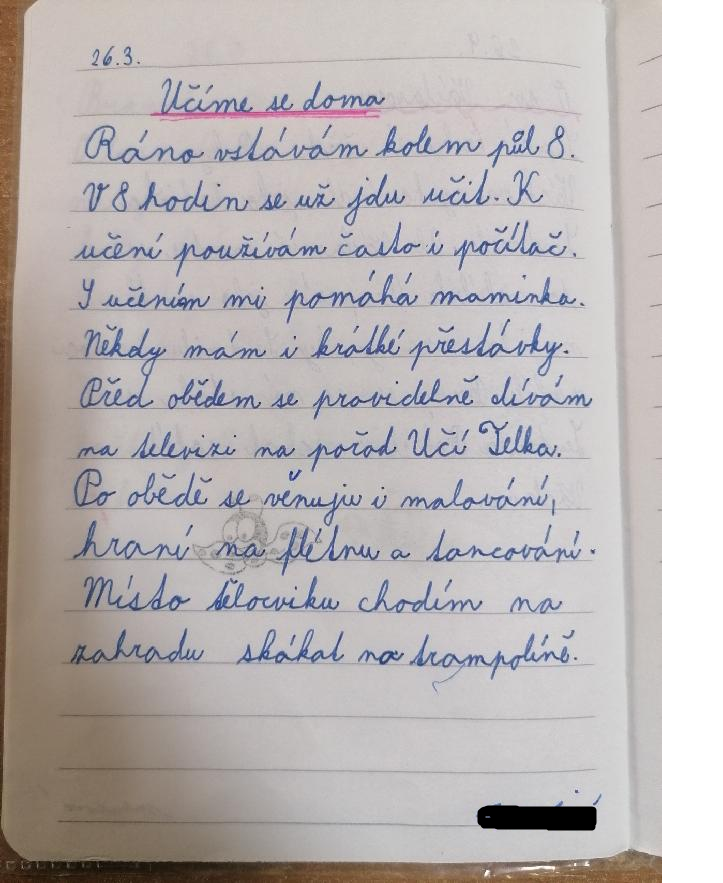 26.3.
Učíme se doma
Ráno vstávám kolem půl 8.
V 8 hodin se už jdu učit. K
učení používám často i počítač.
S učením mi pomáhá maminka.
Někdy mám i krátké přestávky.
Před obědem se pravidelně dívám
na televizi na pořad Učí Telka.
Po obědě se věnuju i malování,
hraní na flétnu a tancování.
Místo tělocviku chodím na
zahradu skákat na trampolíně.